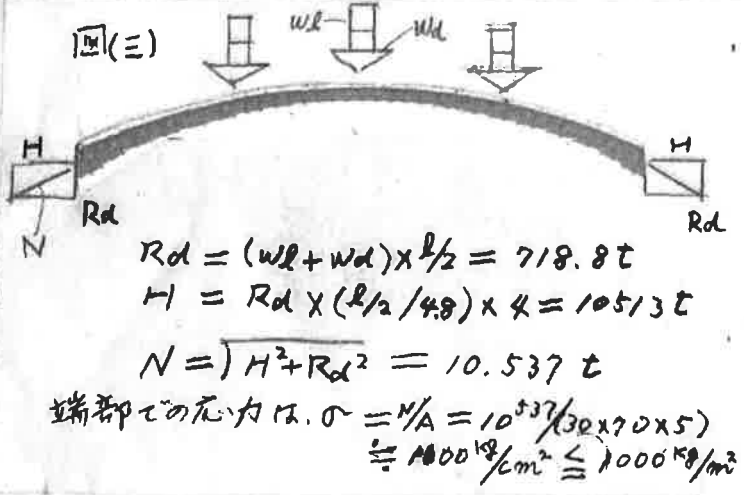 図(三)
Wl Wd
H H
Rd Rd
N
Rd = (Wl+Wd)×l/2 = 718.8t
H = Rd×(l/2/4.8)×4=10513t
N=√H²+Rd² = 10.537 t
端部での応力は、σ =N/A = 10537/(30×70×5)
≒ 1000kg/cm² ≦ 1000kg/m²